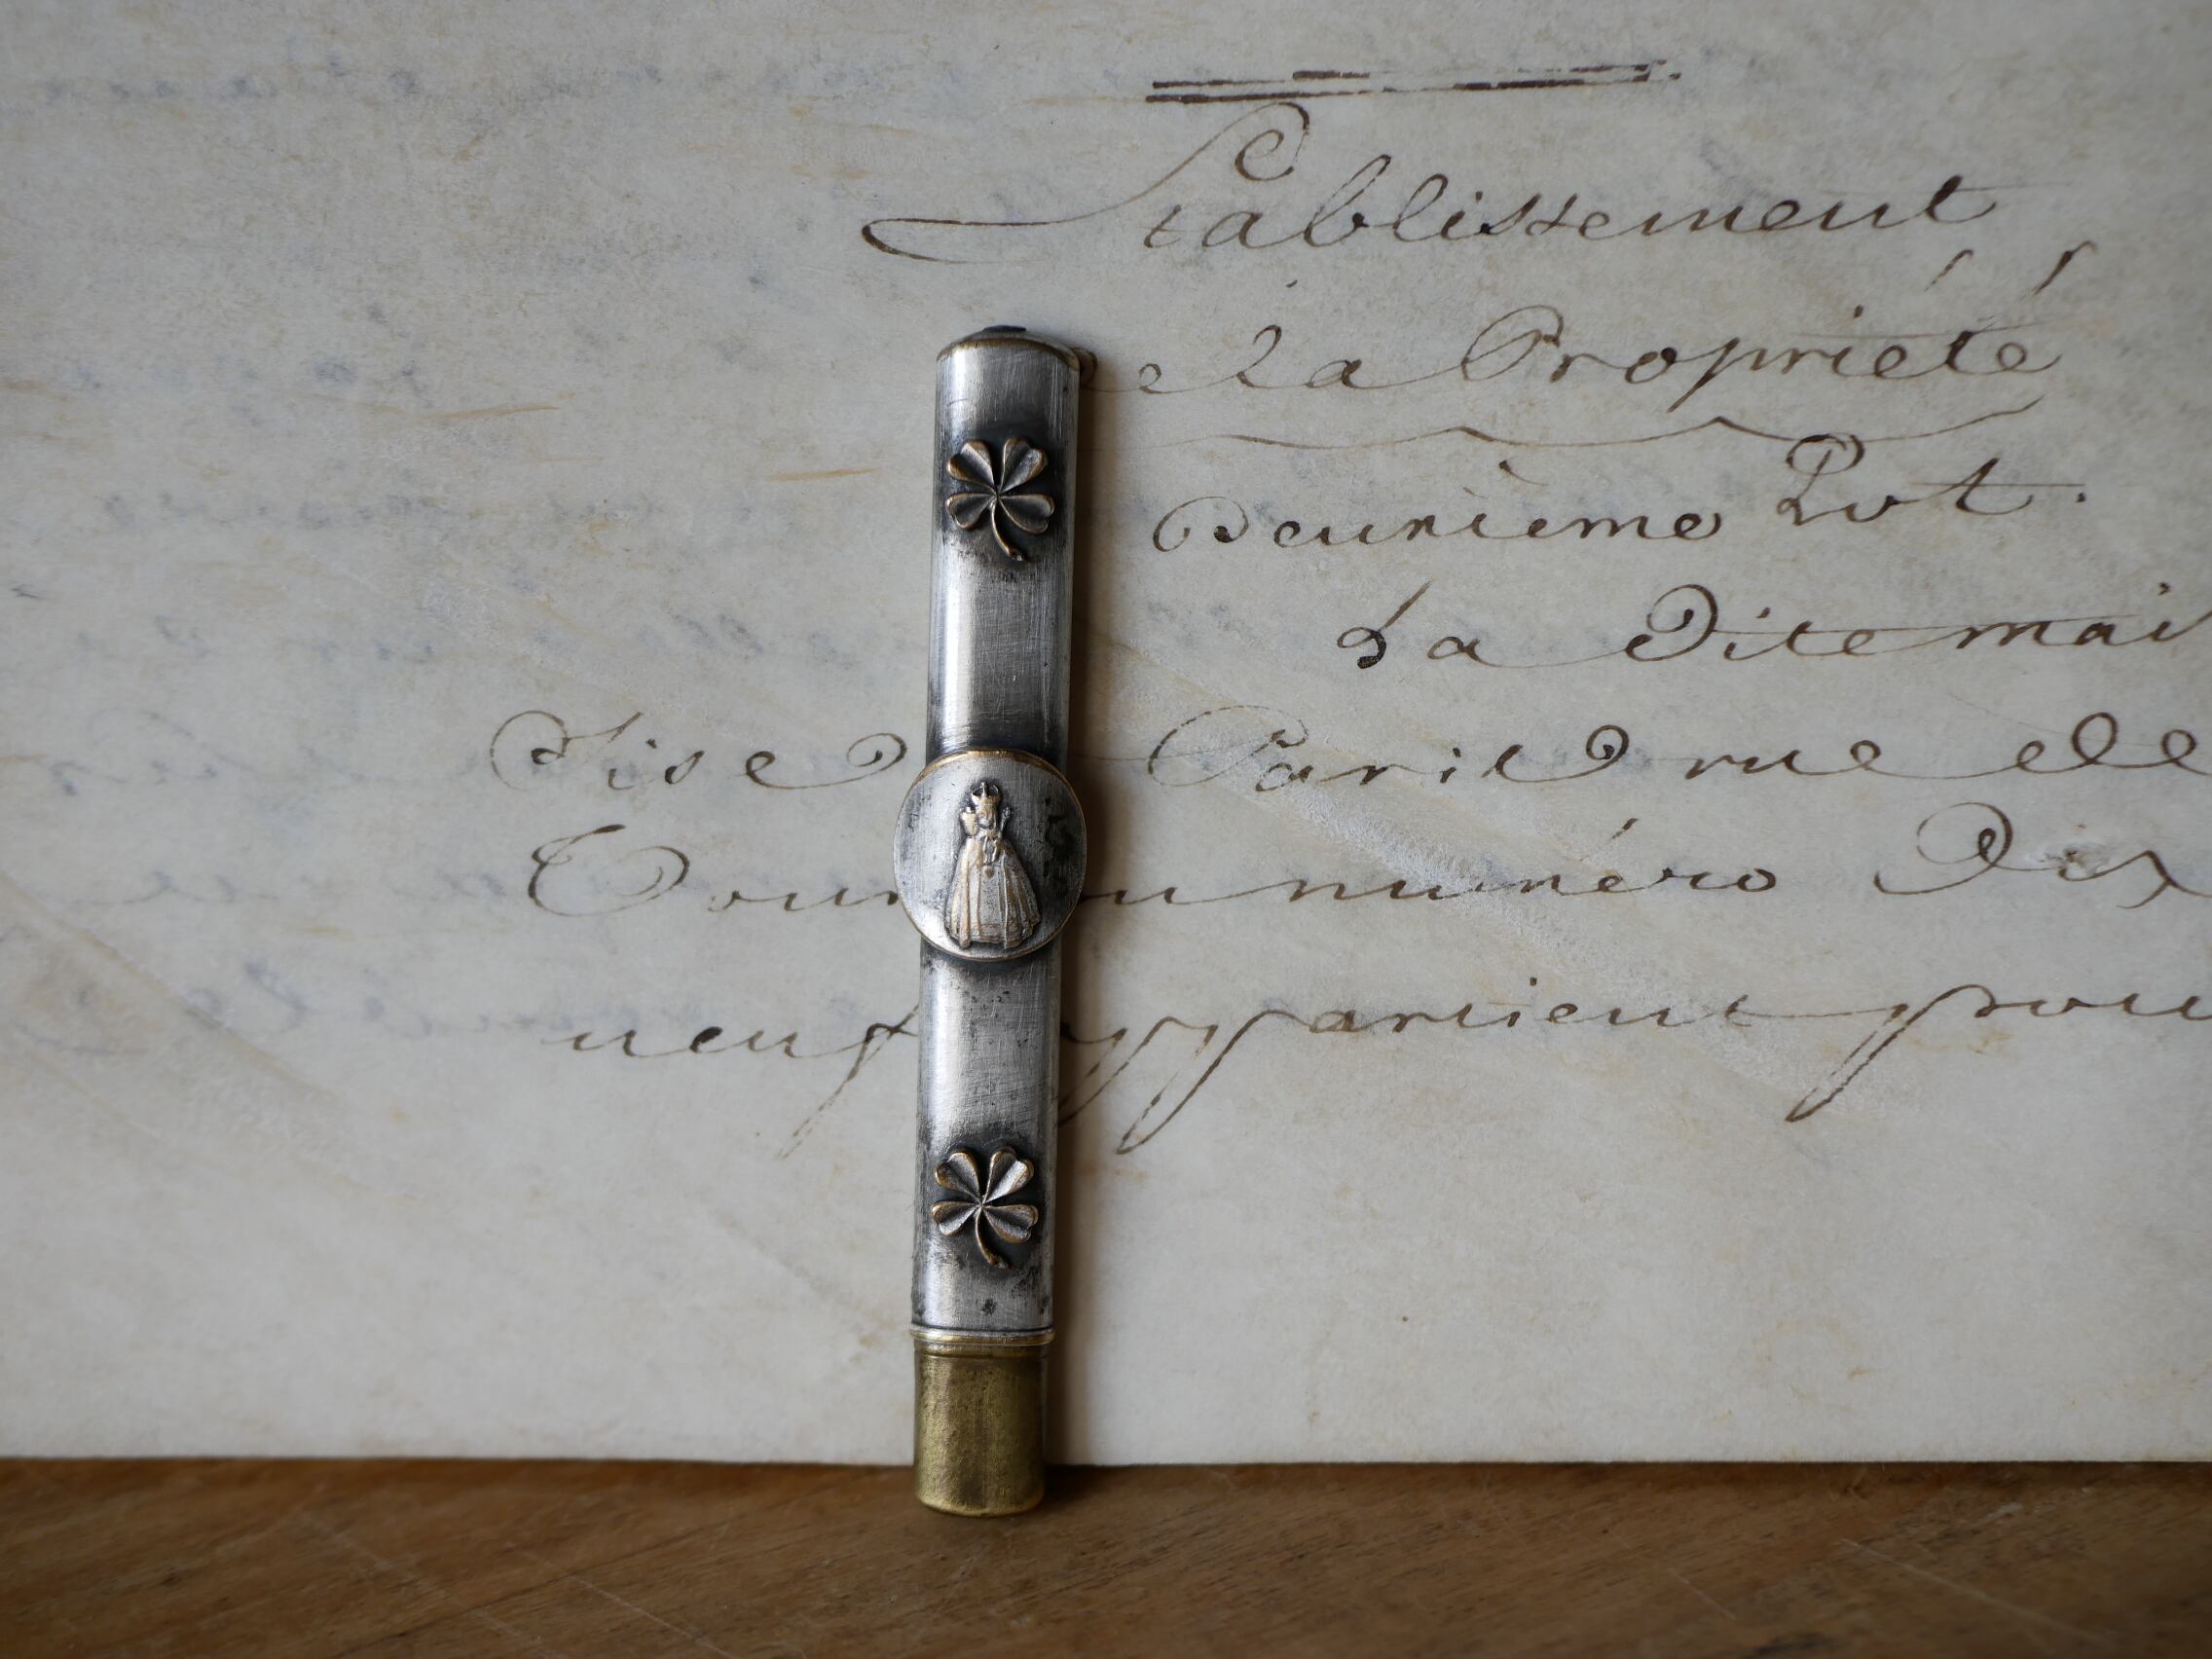 Etablissement
de la Propriété
Deuxième Lot.
La Dite mai
Sise Paris rue de
Tournon numéro Dix
neuf appartient pour